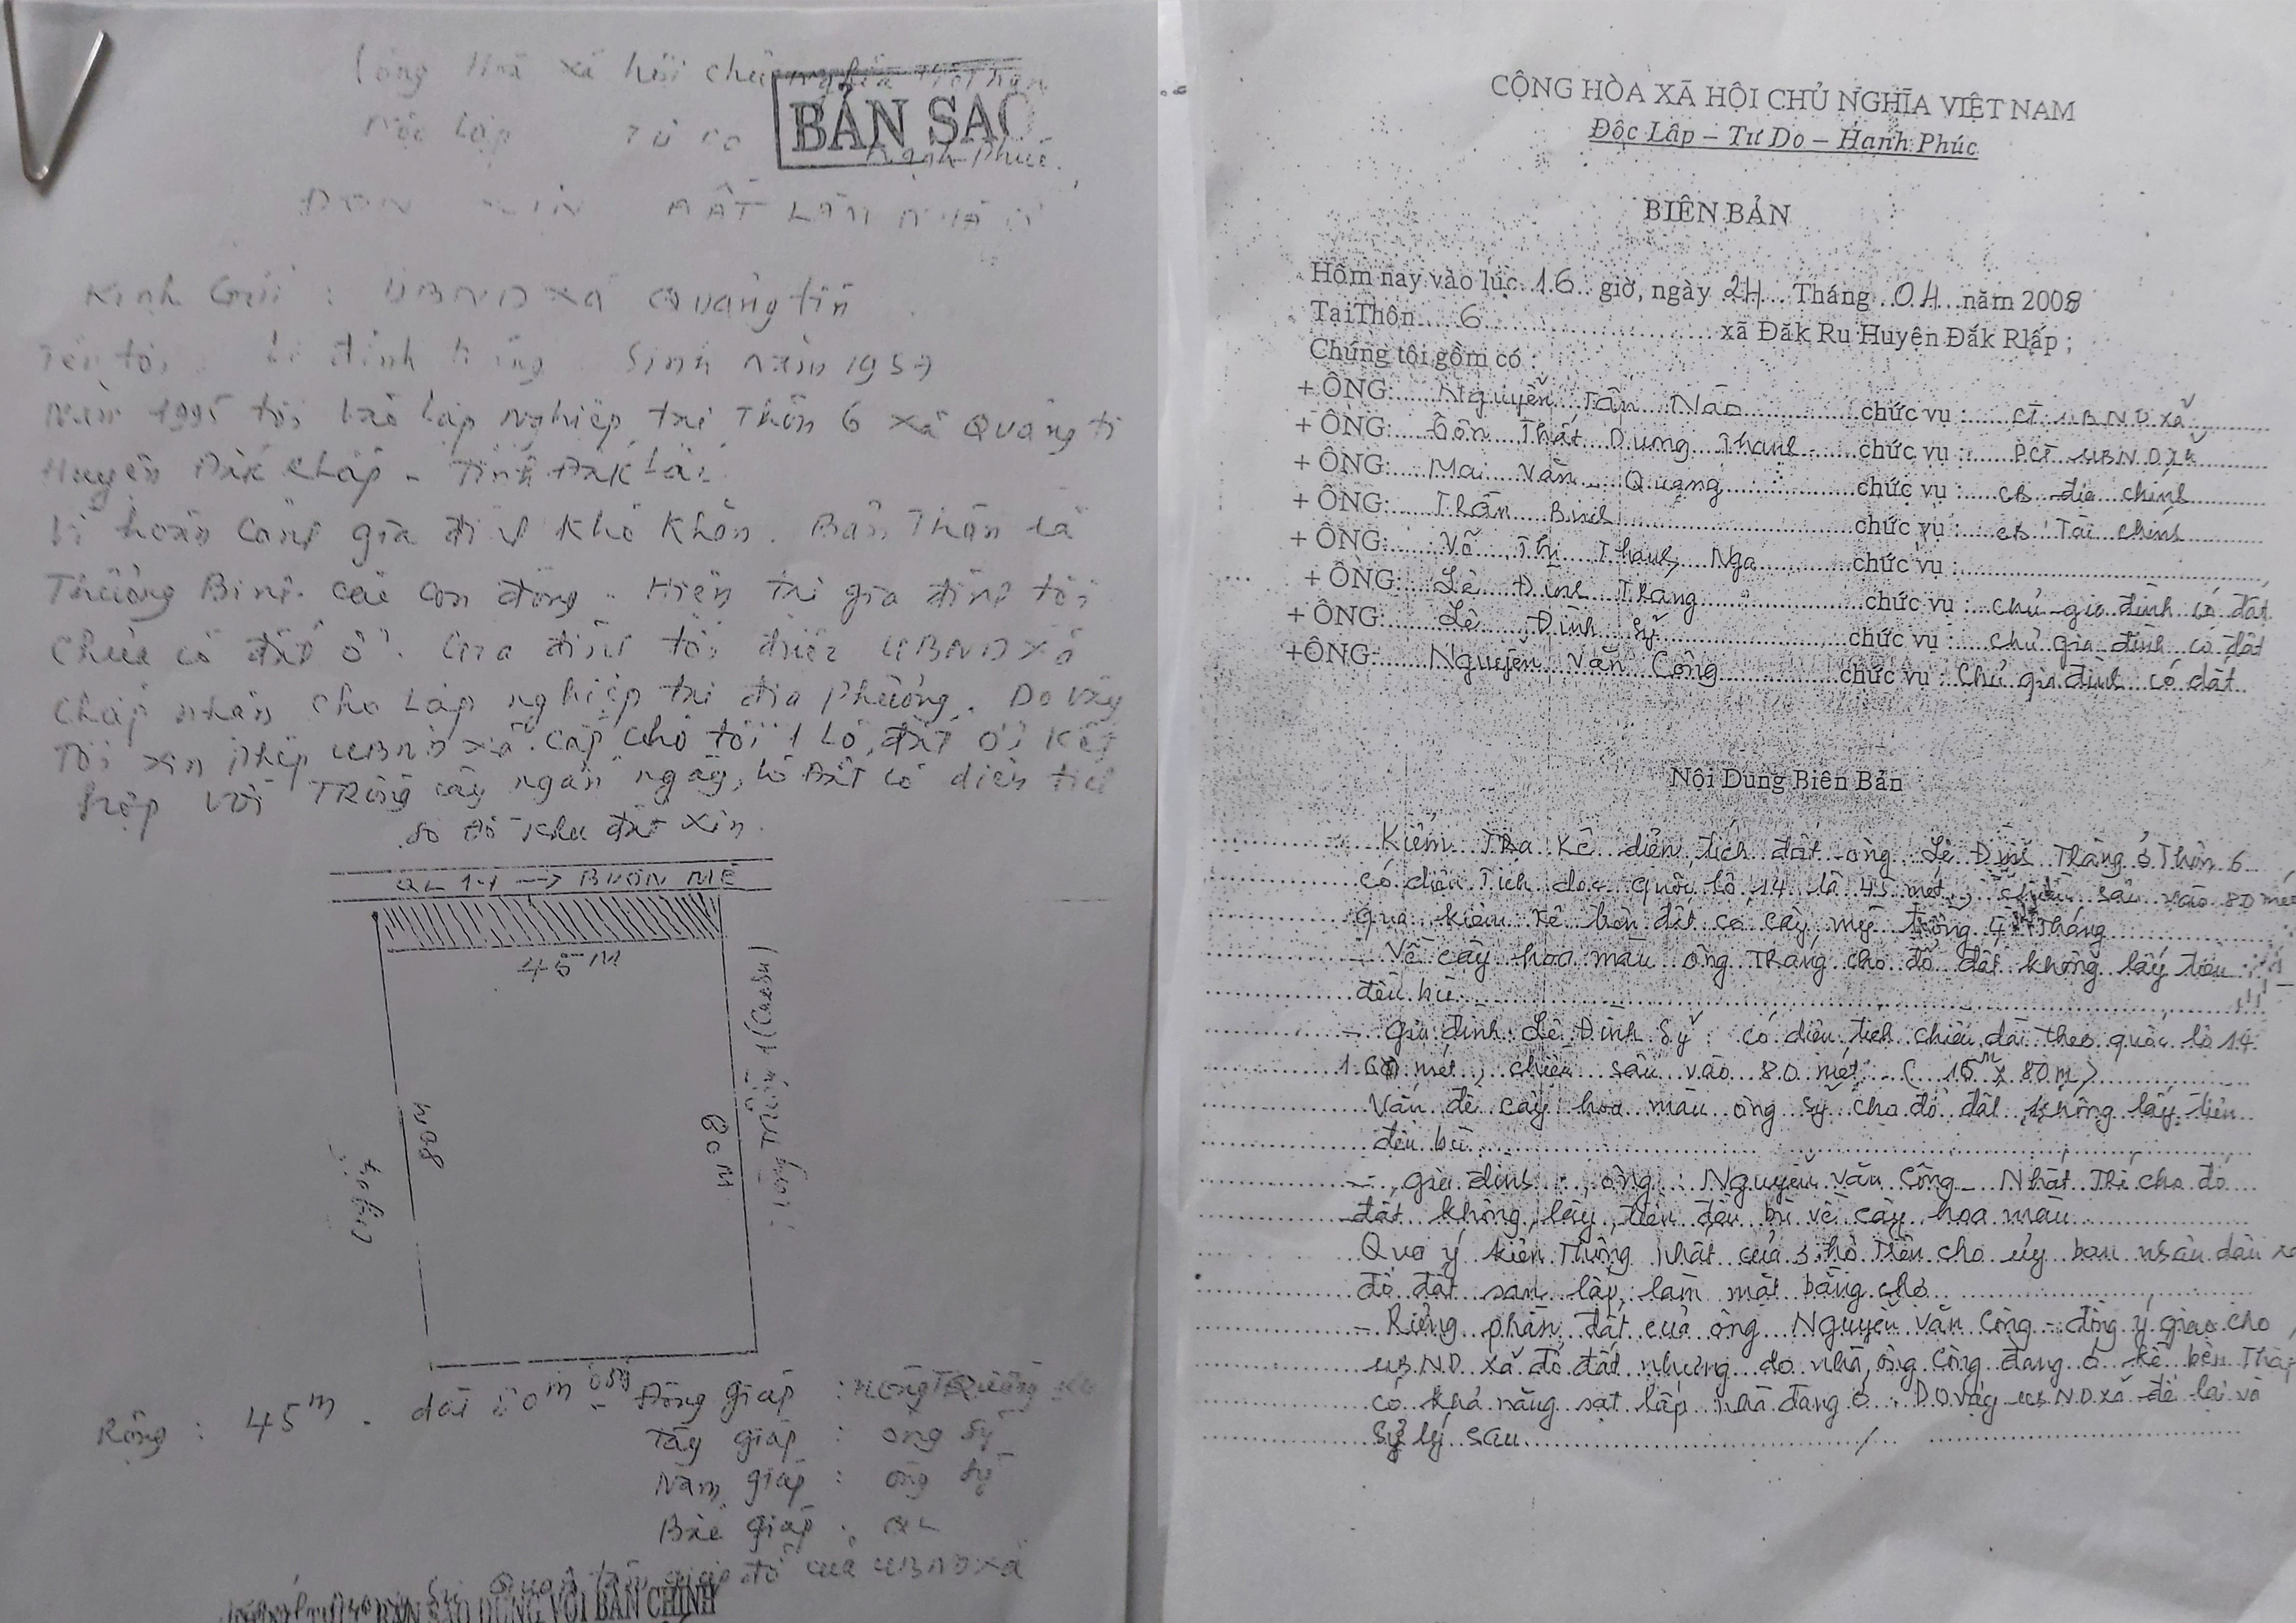 Cộng Hoà xã hội chủ nghĩa Việt Nam
Độc Lập Tự Do Hạnh Phúc.
BẢN SAO
ĐƠN XIN ĐẤT LÀM NHÀ Ở
Kính Gửi : UBND xã Quảng tín
Tên tôi Lê đình Sinh năm 1957
Năm 1995 tôi vào lập nghiệp tại Thôn 6 xã Quảng tí
Huyện Đăk Rlấp - Tỉnh Đăk Lăk
Vì hoàn cảnh gia đình khó khăn. Bản Thân là
Thương Binh. các con đông. Hiện tại gia đình tôi
Chưa có đất ở. Gia đình tôi được UBND xã
chấp nhận cho lập nghiệp tại địa phương. Do vậy
Tôi xin phép UBND xã cấp cho tôi 1 lô đất ở kết
hợp với Trồng cây ngắn ngày, lô đất có diện tích
Sơ đồ khu đất xin.
QL 14 → BUÔN MÊ
45 M
80M
80M
(ông Sỹ)
Nông Trường 1 (Cao Su)
Rộng : 45m . dài 80m Đông giáp : Nông Trường
Tây giáp : ông Sỹ
Nam giáp : ông Sỹ
Bắc giáp : QL
Quan tâm giúp đỡ của UBND xã
BẢN SAO ĐÚNG VỚI BẢN CHÍNH
CỘNG HÒA XÃ HỘI CHỦ NGHĨA VIỆT NAM
Độc Lập – Tự Do – Hạnh Phúc
BIÊN BẢN
Hôm nay vào lúc 16 giờ, ngày 24 Tháng 04 năm 2008
Tại Thôn 6 xã Đăk Ru Huyện Đắk Rlấp ;
Chúng tôi gồm có :
+ ÔNG: Nguyễn Tấn Não chức vụ : CT UBND xã
+ ÔNG: Tôn Thất Dưng Thanh chức vụ : PCT UBND xã
+ ÔNG: Mai Văn Quang chức vụ : CB địa chính
+ ÔNG: Trần Binh chức vụ : CB Tài chính
+ ÔNG: Võ Thị Thanh Nga chức vụ :
+ ÔNG: Lê Đình Thăng chức vụ : chủ gia đình có đất
+ ÔNG: Lê Đình Sỹ chức vụ : chủ gia đình có đất
+ÔNG: Nguyễn Văn Công chức vụ : Chủ gia đình có đất
Nội Dung Biên Bản
Kiểm Tra kê diện tích đất ông Lê Đình Thăng ở Thôn 6
có diện tích dọc quốc lộ 14 là 45 mét, chiều sâu vào 80 mét
qua kiểm kê trên đất có cây mỳ trồng 4 Tháng
- Về cây hoa màu ông Thăng cho đổ đất không lấy tiền
đền bù
- Gia đình Lê Đình Sỹ : có diện tích chiều dài theo quốc lộ 14
mét, chiều sâu vào 80 mét ( 15m x 80m )
Vấn đề cây hoa màu ông Sỹ cho đổ đất không lấy tiền
đền bù
- gia đình ông : Nguyễn Văn Công - Nhất Trí cho đổ
đất không lấy tiền đền bù về cây hoa màu
Qua ý kiến Thống nhất của 3 hộ Trên cho ủy ban nhân dân xã
đổ đất san lấp, làm mặt bằng chợ
- Riêng phần đất của ông Nguyễn Văn Công - đồng ý giao cho
UBND xã đổ đất nhưng do nhà ông Công đang ở kề bên
có khả năng sạt lấp nhà đang ở . Do vậy UBND xã để lại và
Sử lý sau